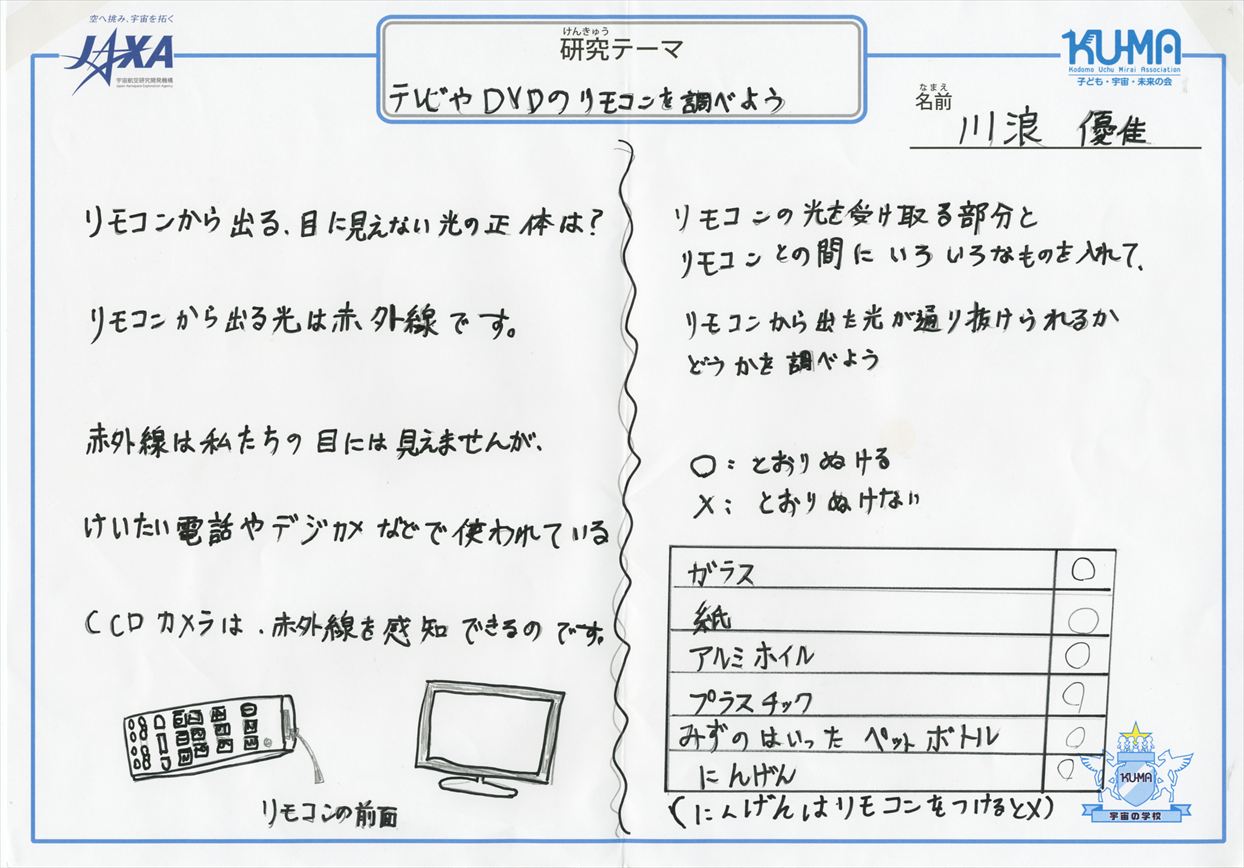 空へ挑み、宇宙を拓く
JAXA
宇宙航空研究開発機構
Japan Aerospace Exploration Agency
けんきゅう
研究テーマ
テレビや DVDのリモコンを調べよう
KU-MA
Kodomo Uchu Mirai Association
子ども・宇宙・未来の会
なまえ
名前
川浪 優佳
リモコンから出る、目に見えない光の正体は?
リモコンから出る光は赤外線です。
赤外線は私たちの目には見えませんが、
けいたい電話やデジカメなどで使われている
CCDカメラは、赤外線を感知できるのです。
リモコンの前面
リモコンの光を受け取る部分と
リモコンとの間にいろいろなものを入れて、
リモコンから出た光が通り抜けられるか
どうかを調べよう
○:とおりぬける
×:とおりぬけない
ガラス ○
紙 ○
アルミホイル ○
プラスチック ○
みずのはいったペットボトル ○
にんげん ○
(にんげんはリモコンをつけると×)
KU-MA
宇宙の学校